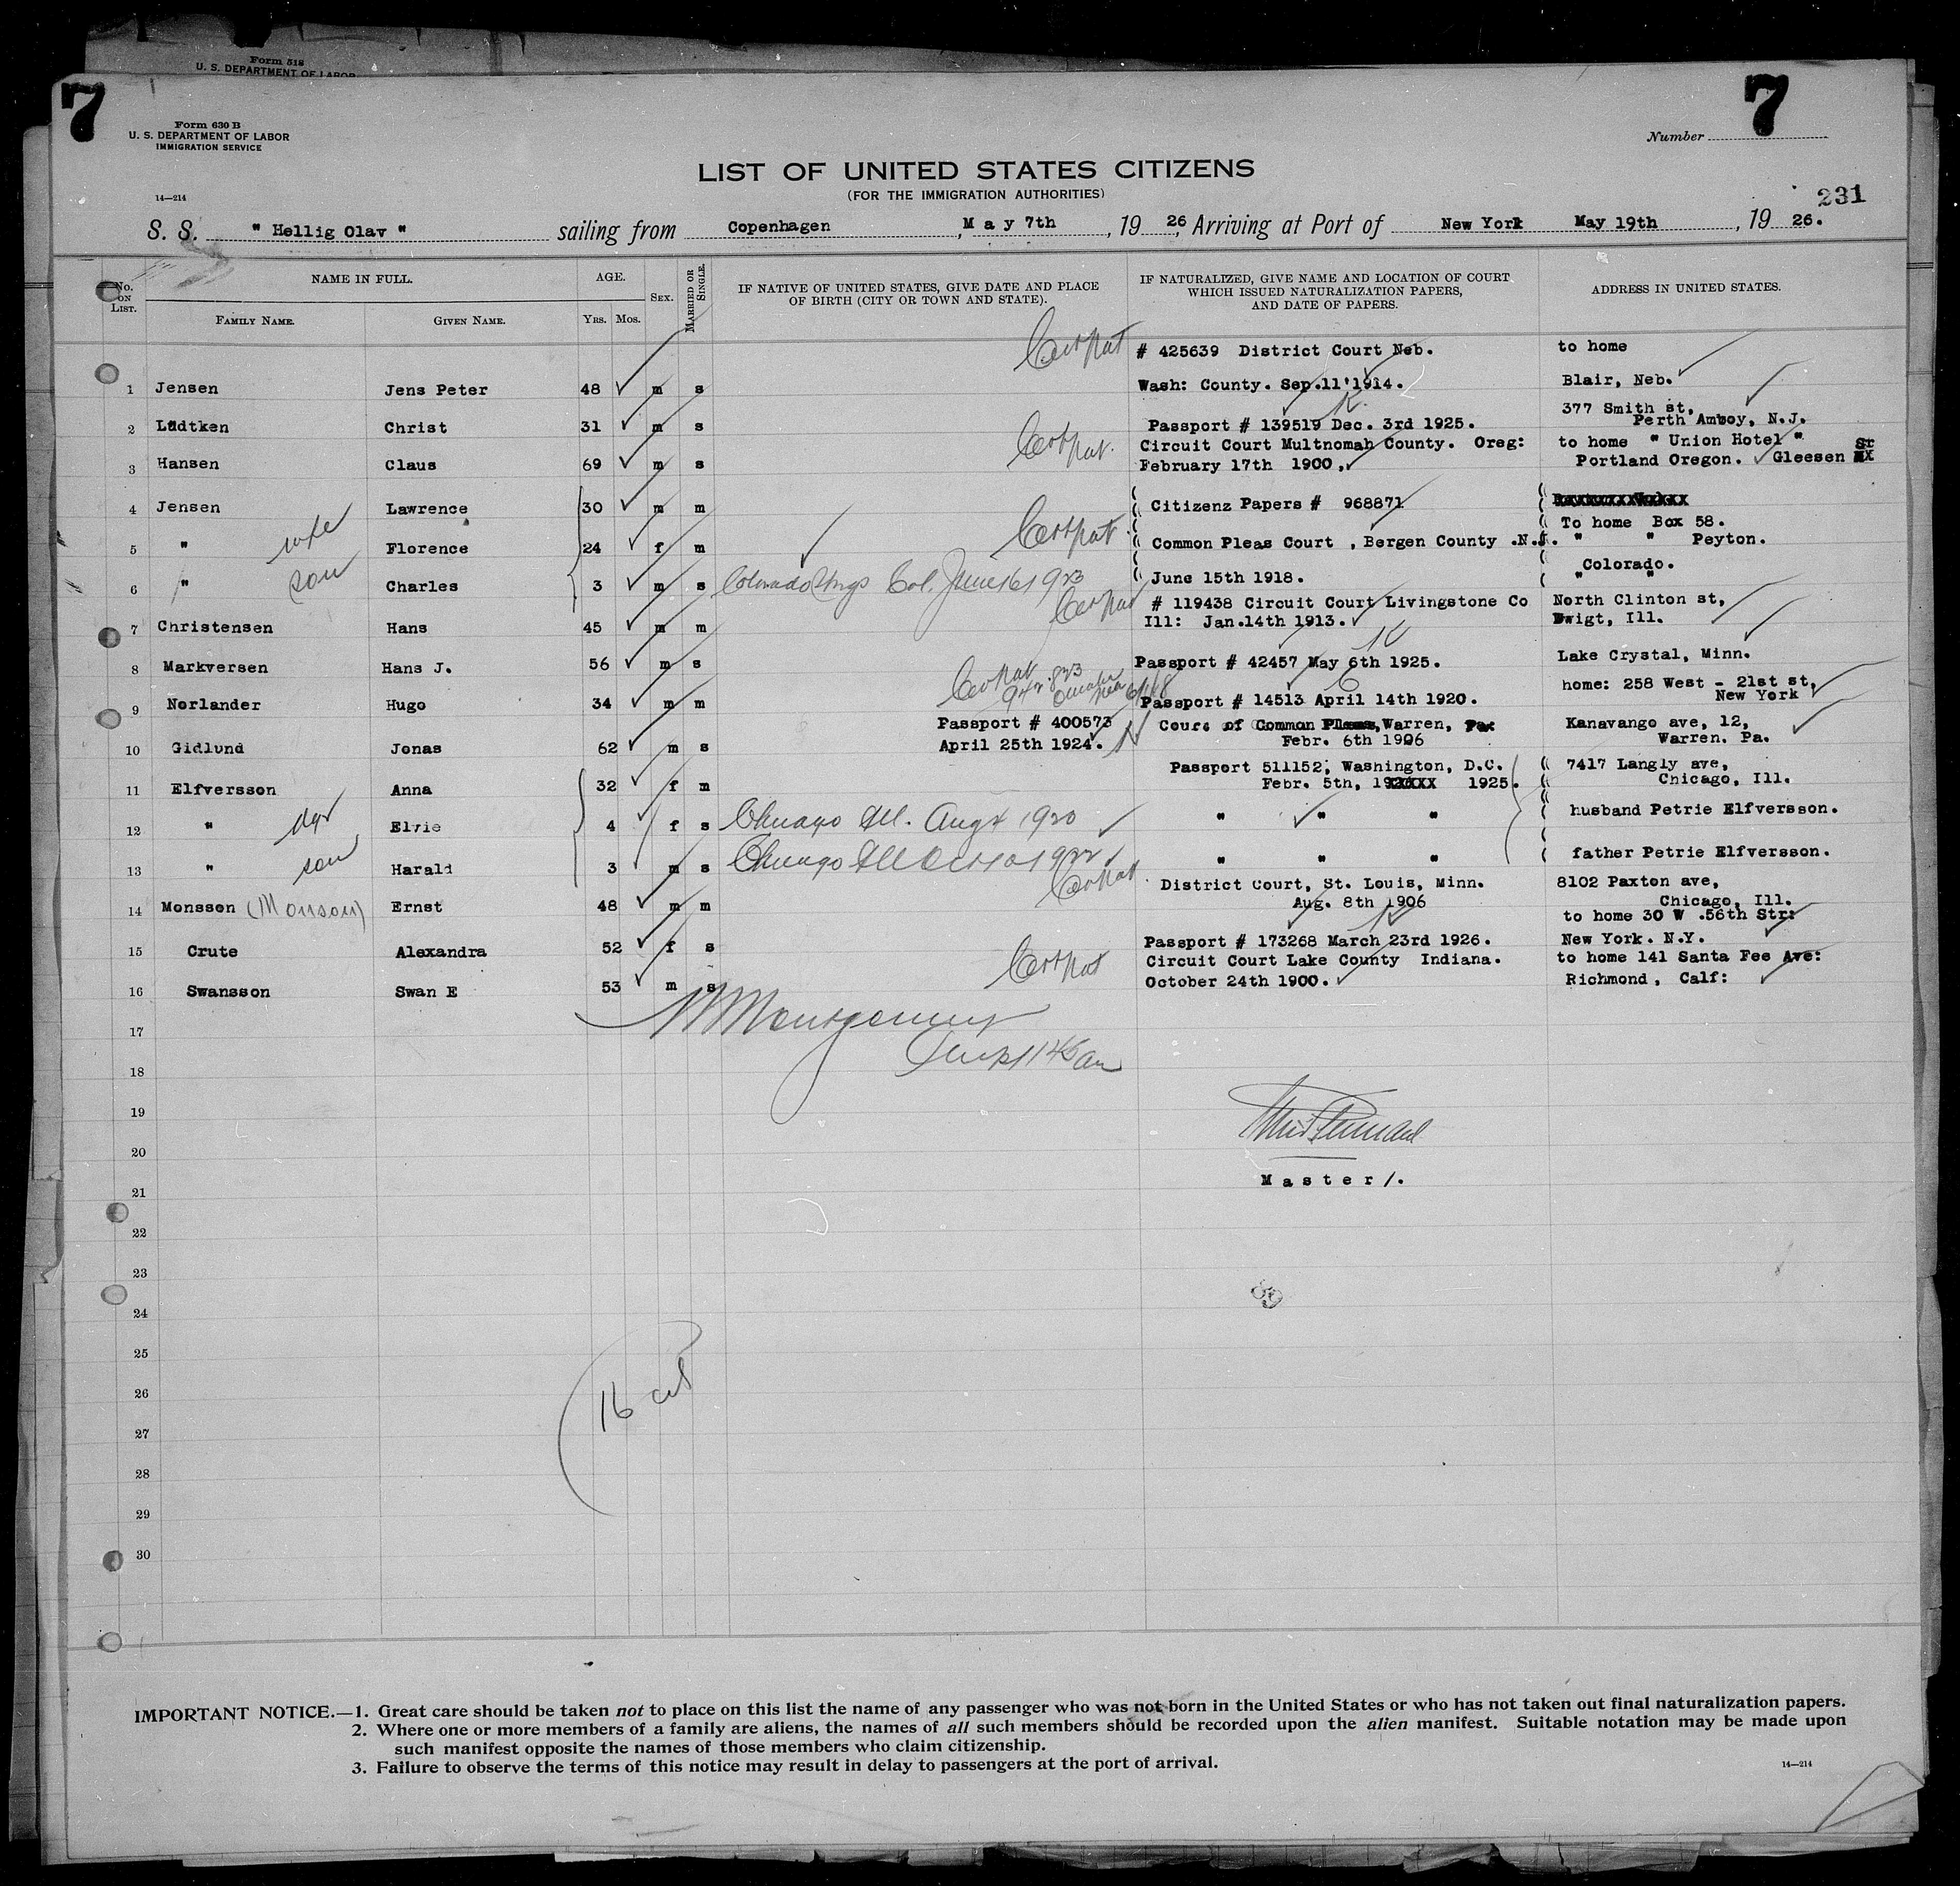 Form 518
U. S. DEPARTMENT OF LABOR
7
7
Form 630 B
U. S. DEPARTMENT OF LABOR
IMMIGRATION SERVICE
Number
LIST OF UNITED STATES CITIZENS
(FOR THE IMMIGRATION AUTHORITIES)
14—214
231
S. S. " Hellig Olav " sailing from Copenhagen, May 7th, 1926, Arriving at Port of New York May 19th, 1926.
No. ON LIST.
NAME IN FULL.
FAMILY NAME.
GIVEN NAME.
AGE.
YRS. MOS.
SEX.
MARRIED OR SINGLE.
IF NATIVE OF UNITED STATES, GIVE DATE AND PLACE OF BIRTH (CITY OR TOWN AND STATE).
IF NATURALIZED, GIVE NAME AND LOCATION OF COURT WHICH ISSUED NATURALIZATION PAPERS, AND DATE OF PAPERS.
ADDRESS IN UNITED STATES.
Cert Nat # 425639 District Court Neb. to home
1 Jensen Jens Peter 48 m s Wash: County. Sep.11'1914. Blair, Neb.
377 Smith st,
2 Lüdtken Christ 31 m s Passport # 139519 Dec. 3rd 1925. Perth Amboy, N.J.
Cert Nat. Circuit Court Multnomah County. Oreg: to home " Union Hotel "
3 Hansen Claus 69 m s February 17th 1900, Portland Oregon. Gleesen St
4 Jensen Lawrence 30 m m Citizenz Papers # 968871
To home Box 58.
5 " wife Florence 24 f m Cert Nat. Common Pleas Court , Bergen County .N.J. " " Peyton.
6 " son Charles 3 m s Colorado Spgs Col. June 16 1923 June 15th 1918. Colorado. " "
Cert Nat # 119438 Circuit Court Livingstone Co North Clinton st,
7 Christensen Hans 45 m m Ill: Jan.14th 1913. Dwigt, Ill.
8 Markversen Hans J. 56 m s Passport # 42457 May 6th 1925. Lake Crystal, Minn.
Cert Nat
home: 258 West - 21st st,
9 Norlander Hugo 34 m m Passport # 14513 April 14th 1920. New York
Passport # 400573 Court of Common Pleas, Warren, Pa Kanavango ave, 12,
10 Gidlund Jonas 62 m s April 25th 1924. Febr. 6th 1906 Warren. Pa.
Passport 511152, Washington, D.C. 7417 Langly ave,
11 Elfversson Anna 32 f m Febr. 5th, 1925. Chicago, Ill.
12 " dgr Elvie 4 f s Chicago Ill. Aug 4 1920 " " " husband Petrie Elfversson.
13 " son Harald 3 m s Chicago Ill Oct 10 1922 " " " father Petrie Elfversson.
Cert Nat. District Court, St. Louis, Minn. 8102 Paxton ave,
14 Monsson (Monson) Ernst 48 m m Aug. 8th 1906 Chicago, Ill.
to home 30 W .56th Str:
15 Crute Alexandra 52 f s Passport # 173268 March 23rd 1926. New York. N.Y.
Cert Nat Circuit Court Lake County Indiana. to home 141 Santa Fee Ave:
16 Swansson Swan E 53 m s October 24th 1900. Richmond, Calf:
17 Montgomery
18
19
20
21 Master/.
22
23
24
25
26 16
27
28
29
30
IMPORTANT NOTICE.—1. Great care should be taken not to place on this list the name of any passenger who was not born in the United States or who has not taken out final naturalization papers.
2. Where one or more members of a family are aliens, the names of all such members should be recorded upon the alien manifest. Suitable notation may be made upon
such manifest opposite the names of those members who claim citizenship.
3. Failure to observe the terms of this notice may result in delay to passengers at the port of arrival.
14—214